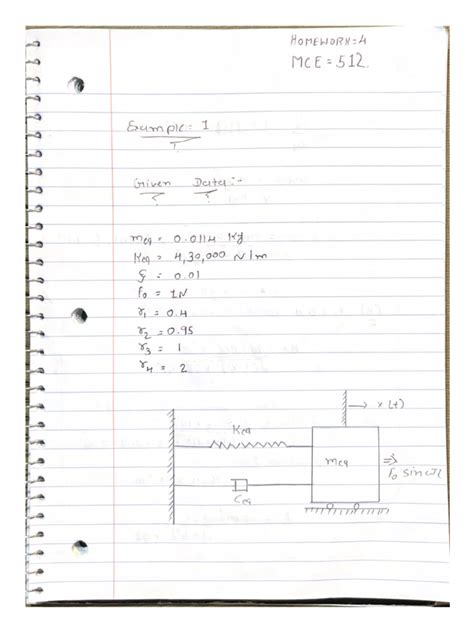 HOMEWORK=4
MCE = 512.
Example: 1
Given Data:-
meq = 0.0114 Kg
Keq = 4,30,000 N/m
ξ = 0.01
F0 = 1N
r1 = 0.4
r2 = 0.95
r3 = 1
r4 = 2
x(t)
Keq
meq
F0 sin
Ceq